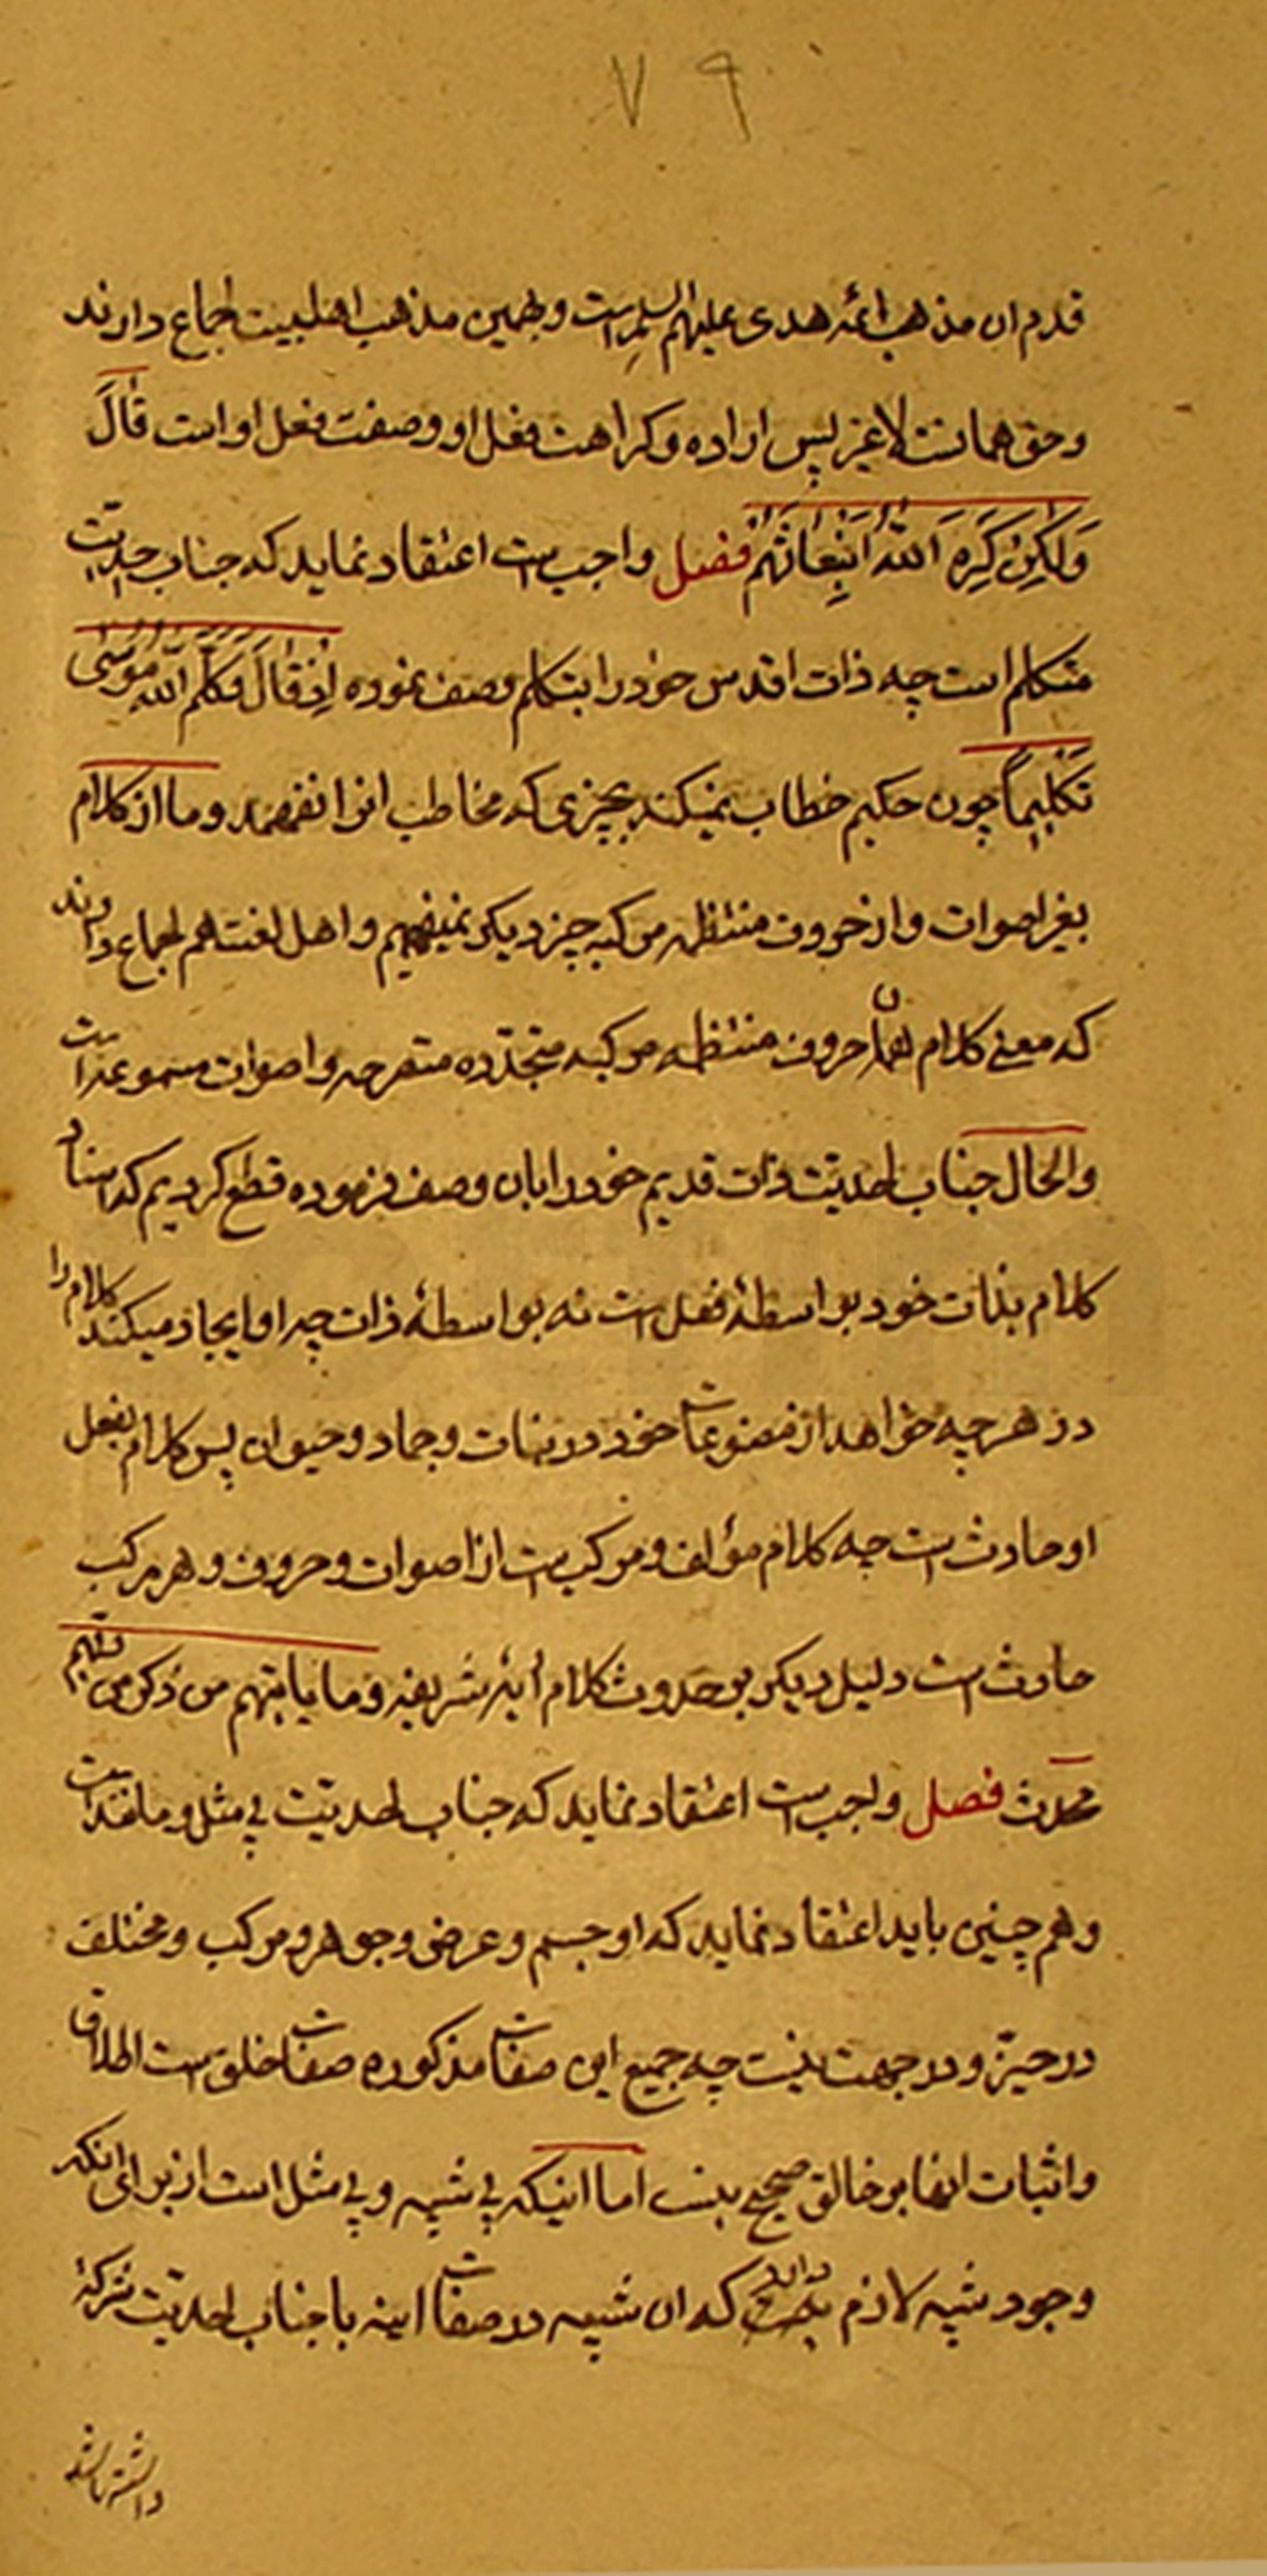 ۷۹
قدم ان مذهب ائمه هدی علیهم السلام است و بهمین مذهب اهلبیت اجماع دارند
و حق همانست لاغیر پس اراده و کراهت فعل او و صفت فعل او است قَالَ
وَلٰکِنْ کَرِهَ اللّٰهُ انْبِعَاثَهُمْ فصل واجب است اعتقاد نماید که جناب احدیت
متکلم است چه ذات اقدس خود را بتکلم وصف نموده اِذْ قَالَ وَکَلَّمَ اللّٰهُ مُوسٰی
تَکْلِیماً چون حکیم خطاب نمیکند بچیزی که مخاطب انرا نفهمد و ما از کلام
بغیر اصوات و از حروف منتظمه مرکبه چیز دیکر نمیفهمیم و اهل لغت هم اجماع دارند
که معنی کلام همان حروف منتظمه مرکبه متجدّده متصرمه و اصوات مسموعه است
والحال جناب احدیّت ذات قدیم خود را بان وصف فرموده قطع کردیم که اسناد
کلام بذات خود بواسطهٔ فعل است نه بواسطهٔ ذات چه او ایجاد میکند کلام را
در هر چه خواهد از مصنوعات خود در نبات و جماد و حیوان پس کلام بفعل
او حادث است چه کلام مؤلف و مرکب است از اصوات و حروف و هر مرکب
حادث است دلیل دیکر بر حدوث کلام أیهٔ شریفه و ما یاتیهم من ذکر من ربّهم
محدث فصل واجب است اعتقاد نماید که جناب احدیّت بی مثل و مانند است
و هم چنین باید اعتقاد نماید که او جسم و عرض و جوهر و مرکب و مختلف
در حیّز و در جهت نیست چه جمیع این صفات مذکوره صفات خلق است اطلاق
و اثبات انها بر خالق صحیح نیست اما اینکه بی شبیه و بی مثل است از برای انکه
وجود شبیه لازم دارد که ان شبیه در صفات با جناب احدیت شرکة
داشته باشد